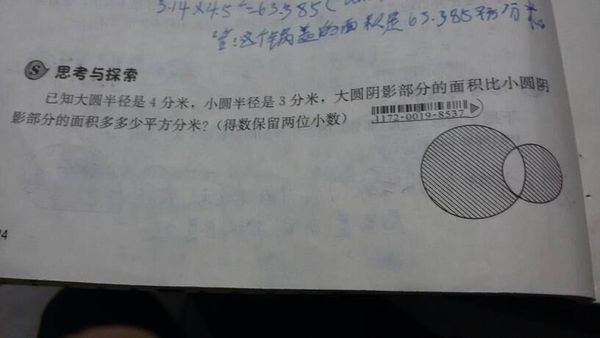 3.14×4.5²=63.585(
答:这个锅盖的面积是63.385平方分米
S 思考与探索
已知大圆半径是4分米,小圆半径是3分米,大圆阴影部分的面积比小圆阴
影部分的面积多多少平方分米?(得数保留两位小数)
1172-0019-8537
24